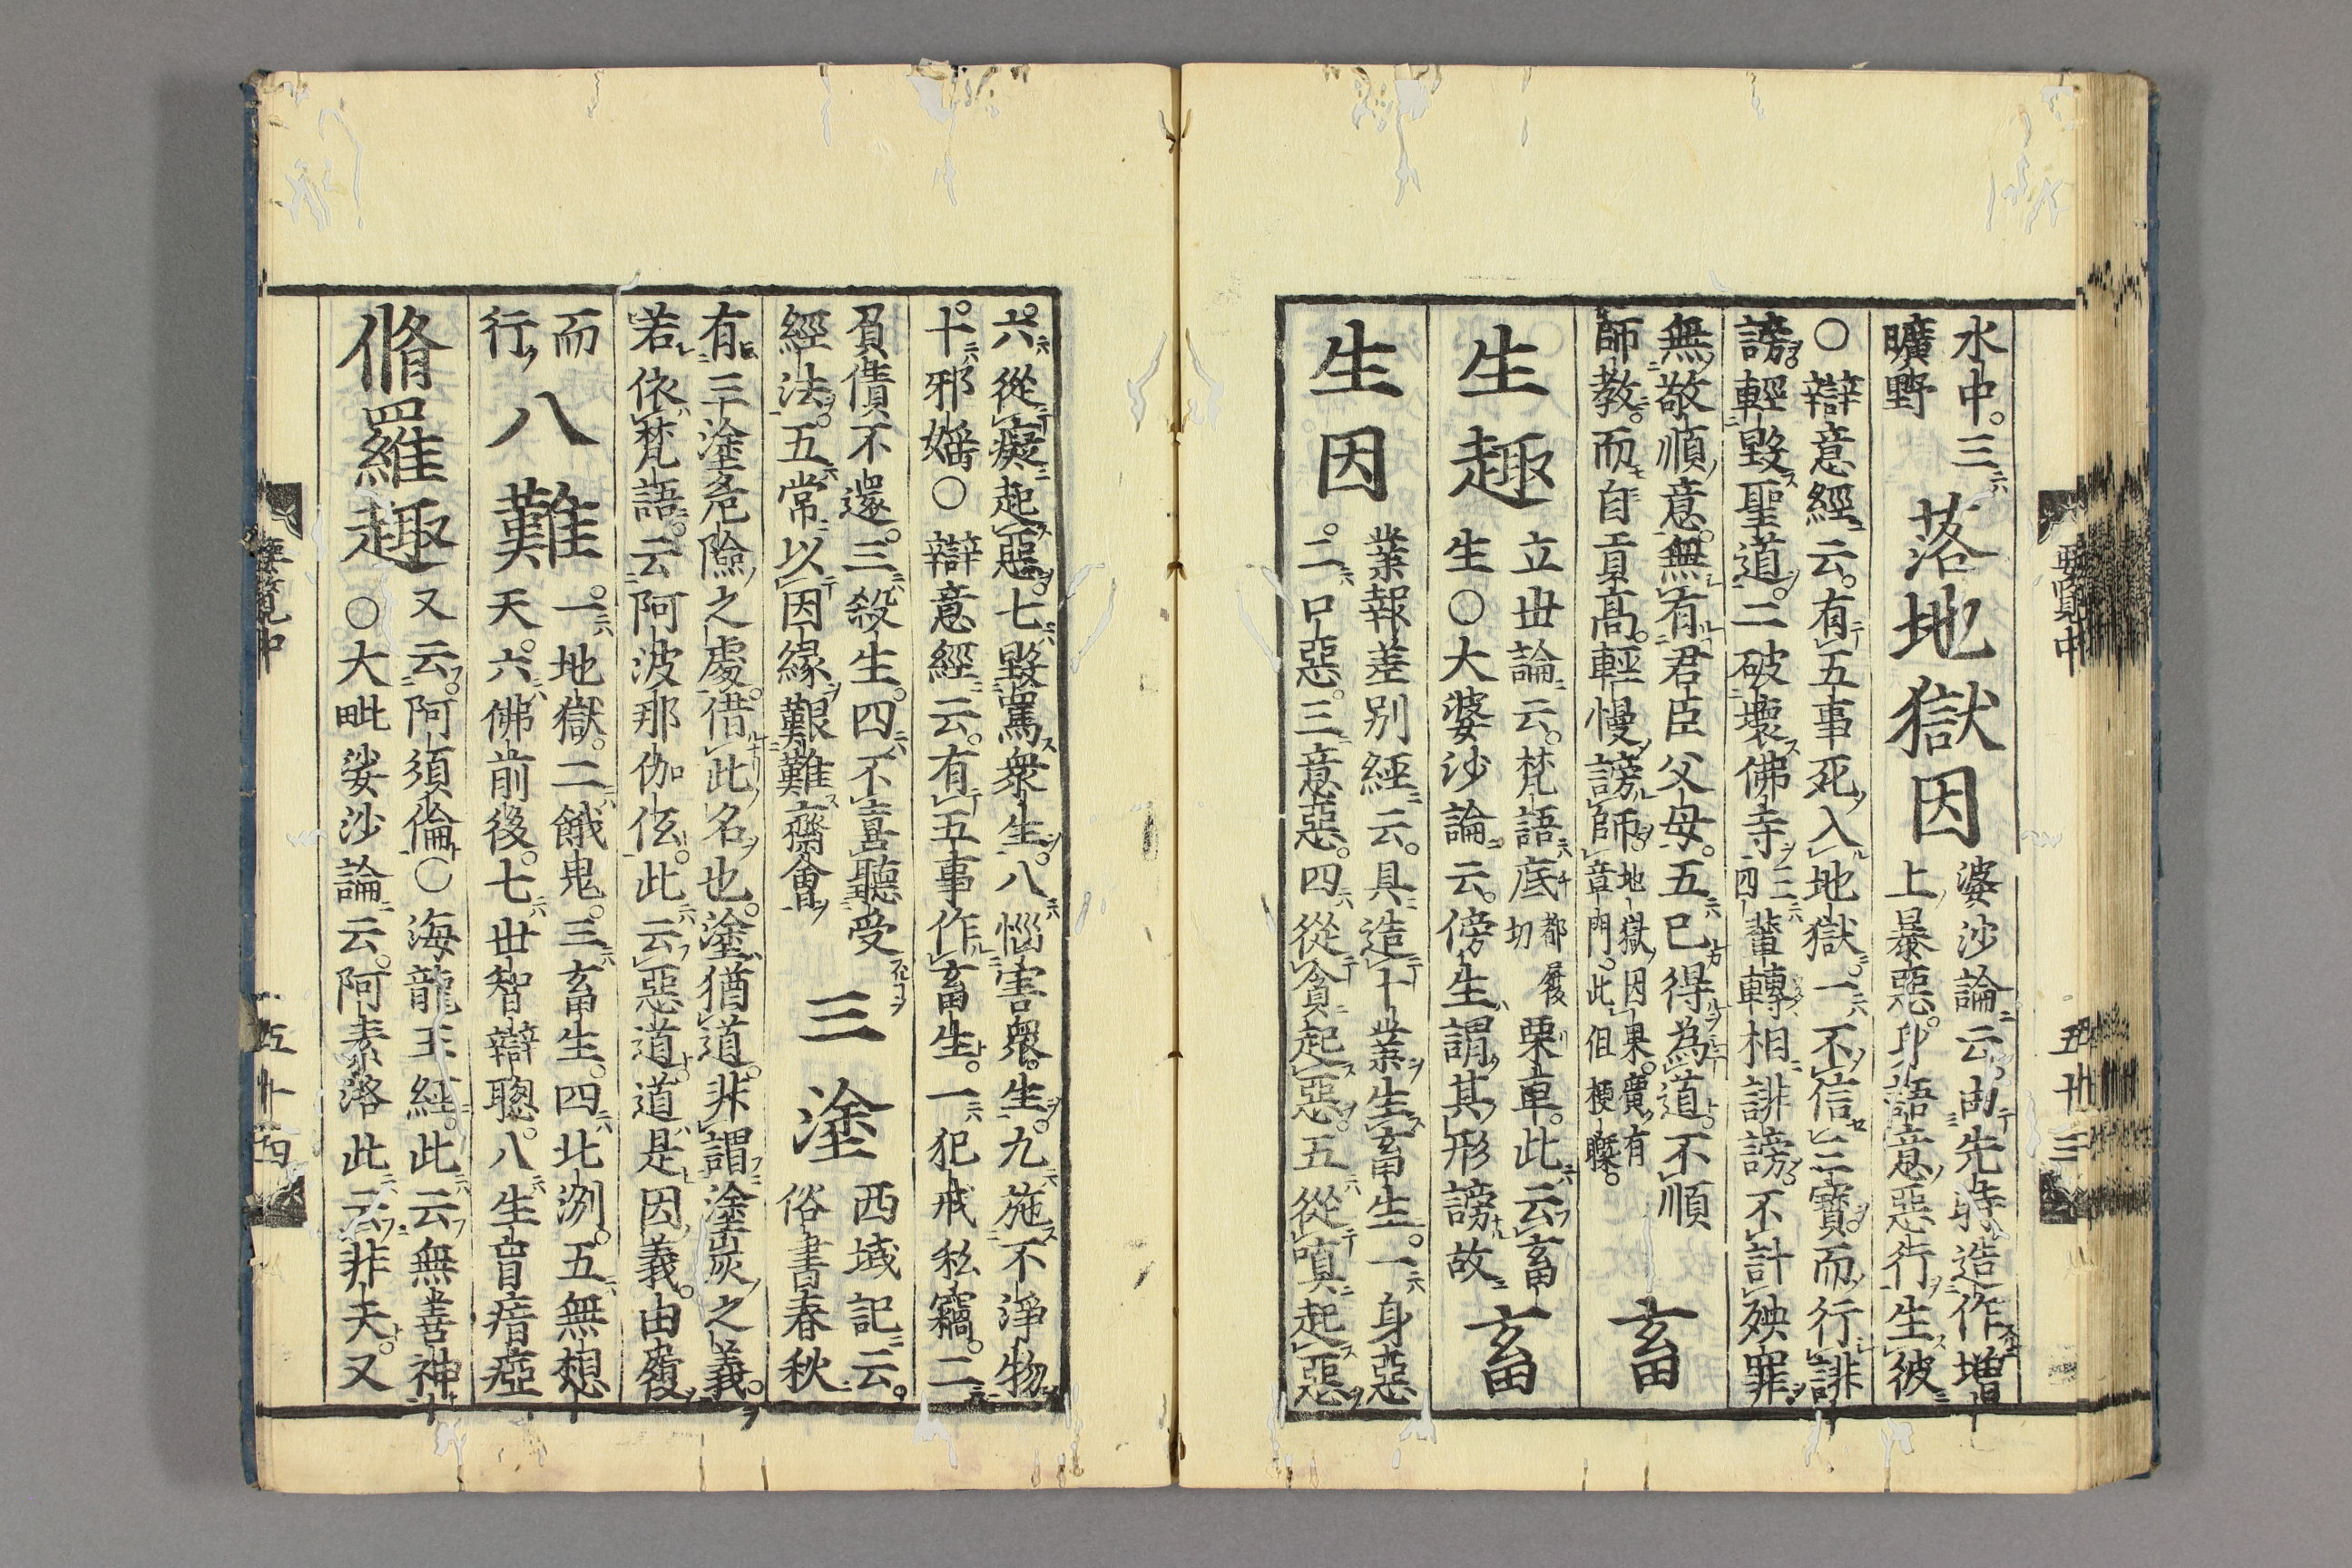 要覽中
五十三
水中。三
曠野
落地獄因
婆沙論云由先時造作増
上暴惡。身語意惡行生彼
○辯意經云。有五事死入地獄。一不信三寶。而行誹
謗。輕毀聖道。二破壞佛寺三四輩轉相誹謗。不計殃罪
無敬順意。無有君臣父母。五已得為道。不順
師教。而自貢高。輕慢謗師。
地獄因果。廣有
章門。此但梗槩。
畜
生趣
立丗論云。梵語底都履切栗車。此云畜
生○大婆沙論云。傍生謂其形謗故
畜
生因
業報差別經云。具造十業生畜生。一身惡
。二口惡。三意惡。四從貪起惡。五從嗔起惡
六。從癡起惡。七毀罵衆生。八惱害衆生。九施不淨物
十。邪婬○辯意經云。有五事作畜生。一犯戒私竊。二
負債不還。三殺生。四不喜聽受
經法。五常以因緣艱難齋會
三塗
西域記云。
俗書春秋
有三塗危險之處。借此名也。塗猶道。非謂塗炭之義。
若依梵語。云阿波那伽伭。此云惡道。道是因義。由履
而
行
八難
。一地獄。二餓鬼。三畜生。四北洌。五無想
天。六佛前後。七丗智辯聰。八生盲瘖瘂
脩羅趣
又云。阿須倫○海龍王經。此云無善神
○大毗娑沙論云。阿素洛此云非天。又
要覽中
五十四